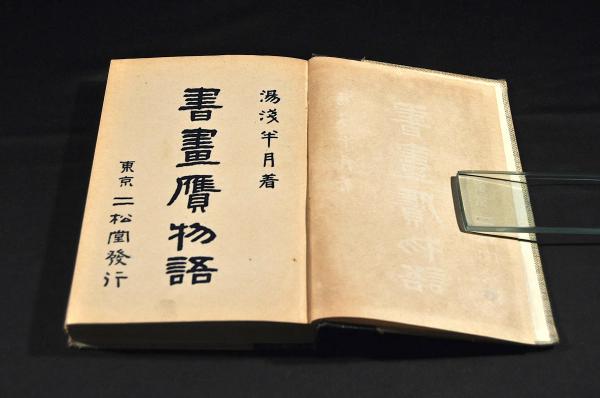 湯淺半月着
書畫贋物語
東京 二松堂發行